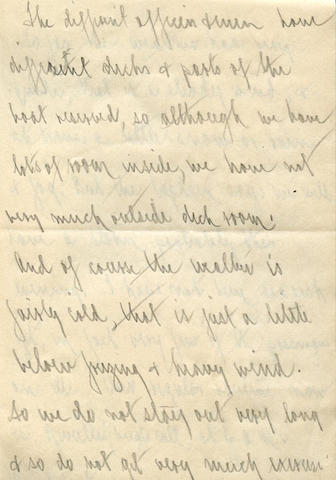 The different officers & men have
different decks & parts of the
boat reserved, so although we have
lots of room inside, we have not
very much outside deck room.
And of course the weather is
fairly cold, that is just a little
below freezing & heavy wind.
So we do not stay out very long
& so do not get very much exercise